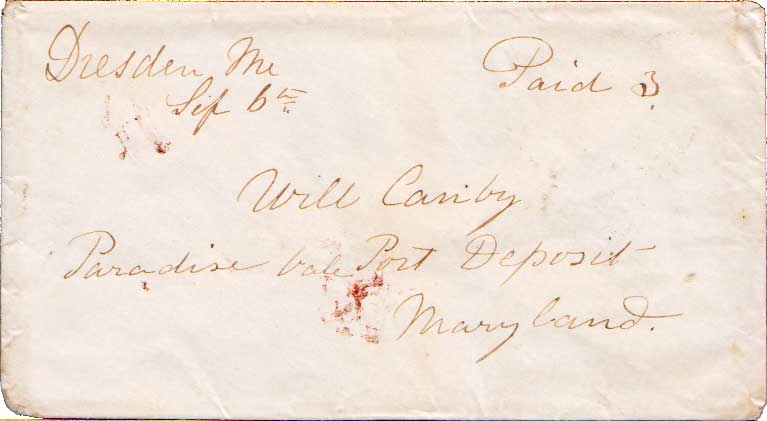 Dresden Me
Sep 6th
Paid 3
Will Canby
Paradise Vale Port Deposit
Maryland.